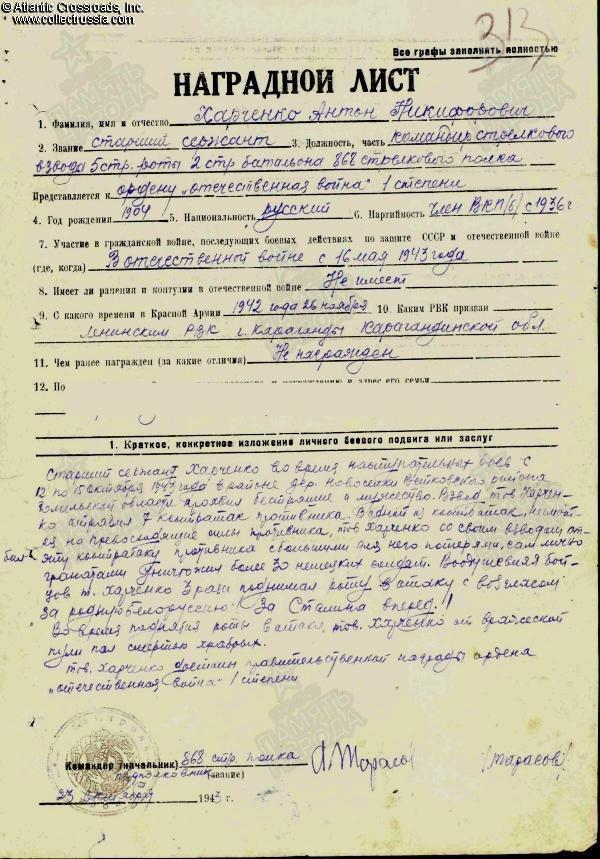 © Atlantic Crossroads, Inc.
www.collectrussia.com
313
Все графы заполнять полностью
НАГРАДНОЙ ЛИСТ
1. Фамилия, имя и отчество Харченко Антон Никифорович
2. Звание старший сержант 3. Должность, часть командир стрелкового
взвода 5 стр. роты 2 стр батальона 868 стрелкового полка
Представляется к ордену "отечественная война" 1 степени
4. Год рождения 1904 5. Национальность русский 6. Партийность член ВКП/б/ с 1936 г
7. Участие в гражданской войне, последующих боевых действиях по защите СССР и отечественной войне
(где, когда) В отечественной войне с 16 мая 1943 года
8. Имеет ли ранения и контузии в отечественной войне Не имеет
9. С какого времени в Красной Армии 1942 года 26 ноября 10. Каким РВК призван
Ленинским РВК г. Караганды Карагандинской обл.
11. Чем ранее награжден (за какие отличия) Не награжден
12. По
и награждению и адрес его семьи
1. Краткое, конкретное изложение личного боевого подвига или заслуг
Старший сержант Харченко во время наступательных боев с
12 по 15 октября 1943 года в районе дер. Новоселки Ветковского района
Гомельской области проявил бесстрашие и мужество. Взвод тов. Харчен-
ко отразил 7 контратак противника. В одной из контратак, несмот-
ря на превосходящие силы противника, тов. Харченко со своим взводом от-
бил эту контратаку противника с большими для него потерями, сам лично
гранатами уничтожил более 30 немецких солдат. Воодушевляя бой-
цов т. Харченко 3 раза поднимал роту в атаку с возгласом
За родную белоруссию! За Сталина вперед!
Во время поднятия роты в атаку, тов. Харченко от вражеской
пули пал смертью храбрых.
тов. Харченко достоин правительственной награды ордена
"отечественная война" 1 степени
Командир (начальник) 868 стр. полка
подполковник (звание) Тарасов (тарасов)
23 октября 1943 г.
ПАМЯТЬ НАРОДА